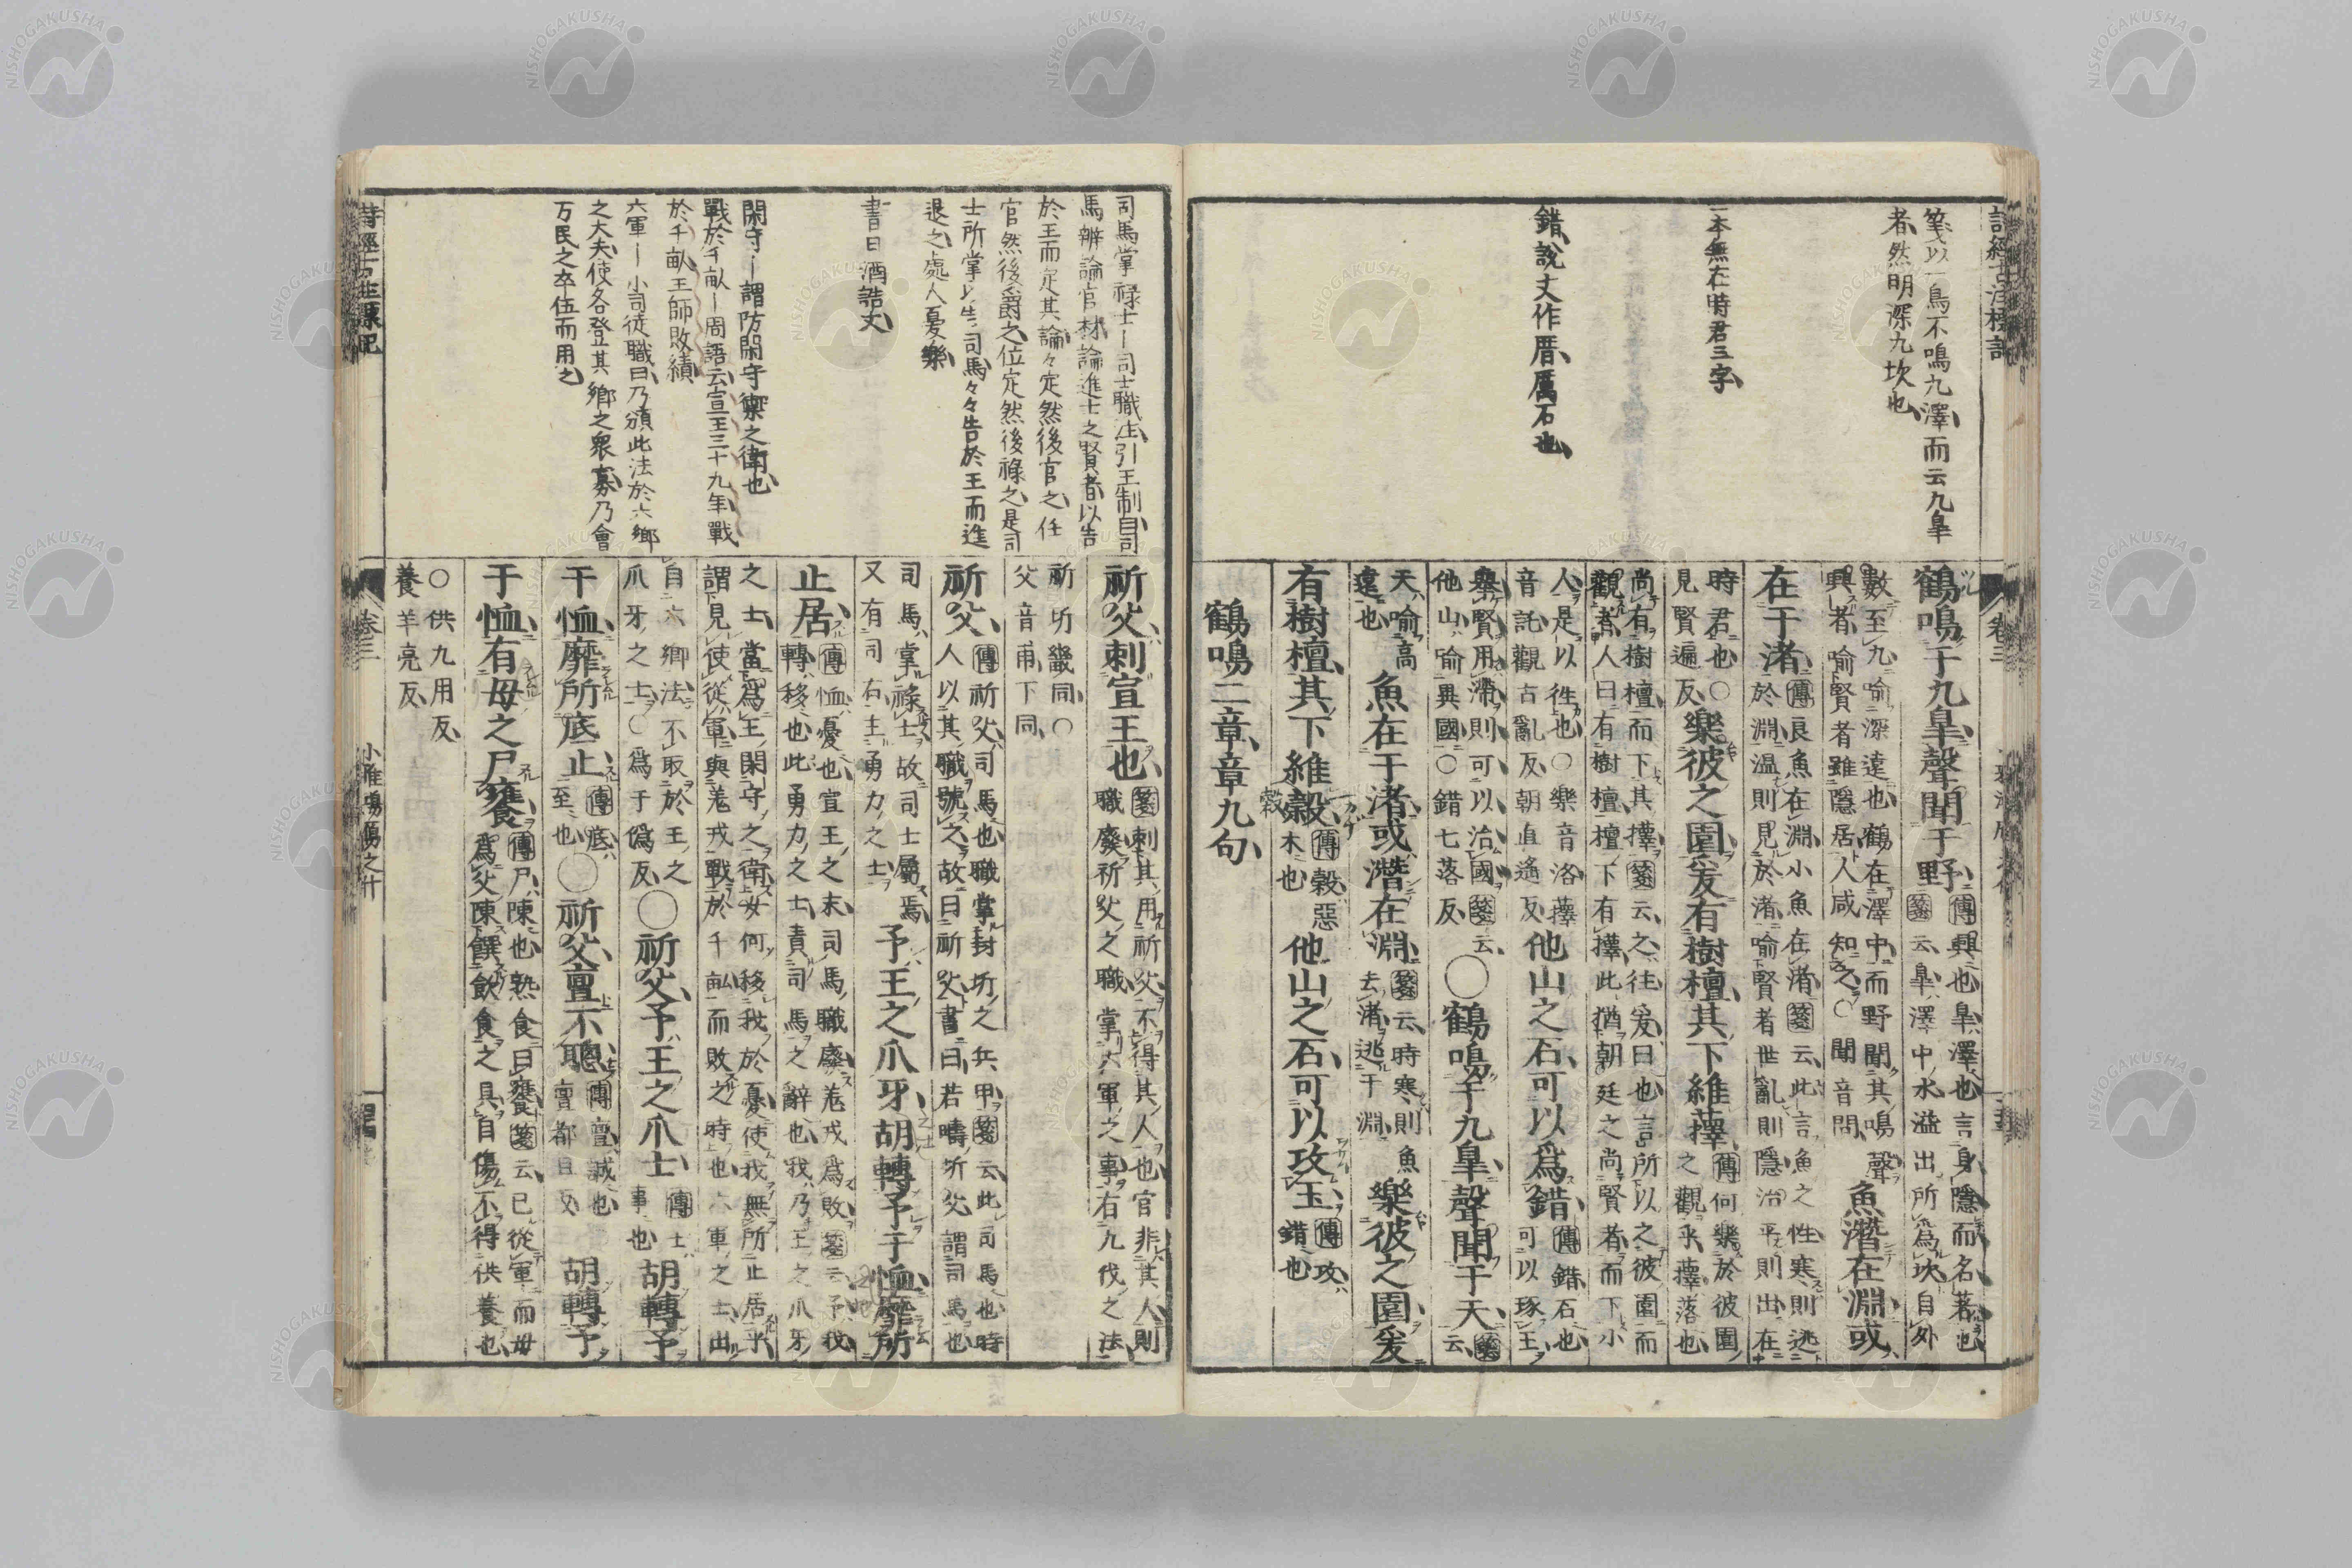 箋以一鳥不鳴九澤而云九皐
者然明深九坎也
一本無在時君三字
錯說文作厝厲石也
鶴鳴于九皐聲聞于野傳興也皐澤也言身隱而名著也
箋云皐澤中水溢出所爲坎自外
數至九喻深遠也鶴在澤中而野聞其鳴聲
興者喻賢者雖隱居人咸知之○聞音問
魚潛在淵或
在于渚傳良魚在淵小魚在渚箋云此言魚之性寒則逃
於淵溫則見於渚喻賢者世亂則隱治平則出在
時君也○
見賢遍反
樂彼之園爰有樹檀其下維蘀傳何樂於彼園
之觀乎蘀落也
尚有樹檀而下其蘀箋云之往爰曰也言所以之彼園而
觀者人曰有樹檀檀下有蘀此猶朝廷之尚賢者而下小
人是以往也○樂音洛蘀
音託觀古亂反朝直遙反
他山之石可以爲錯傳錯石也
可以琢玉
舉賢用滯則可以治國箋云
他山喻異國○錯七落反
○鶴鳴于九皐聲聞于天箋
云
天喻高
遠也
魚在于渚或潛在淵箋云時寒則魚
去渚逃于淵
樂彼之園爰
有樹檀其下維榖傳榖惡
木也
他山之石可以攻玉傳攻
錯也
鶴鳴二章章九句
卷三
司馬掌祿士〡司士職注引王制曰司
馬辨論官材論進士之賢者以告
於王而定其論々定然後官之任
官然後爵之位定然後祿之是司
士所掌以告司馬々々告於王而進
退之處人憂樂
書曰酒誥文
閑守〡謂防閑守禦之衛也
戰於千畝〡周語云宣王三十九年戰
於千畝王師敗績
六軍〡小司徒職曰乃頒此法於六鄉
之大夫使各登其鄉之衆寡乃會
万民之卒伍而用之
祈父刺宣王也箋刺其用祈父不得其人也官非其人則
職廢祈父之職掌六軍之事有九伐之法
祈圻畿同○
父音甫下同
祈父傳祈父司馬也職掌封圻之兵甲箋云此司馬也時
人以其職號之故曰祈父書曰若疇圻父謂司馬也
司馬掌祿士故司士屬焉
又有司右主勇力之士
予王之爪牙胡轉予于恤靡所
止居傳恤憂也宣王之末司馬職廢羌戎爲敗箋云予我
轉移也此勇力之士責司馬之辭也我乃王之爪牙
之士當爲王閑守之衛女何移我於憂使我無所止居乎
謂見使從軍與羌戎戰於千畝而敗之時也六軍之士出
自六鄉法不取於王之
爪牙之士○爲于僞反
○祈父予王之爪士傳士
事也
胡轉予
于恤靡所底止傳底
至也
○祈父亶不聰傳亶誠也
亶都且反
胡轉予
于恤有母之尸饔傳尸陳也熟食曰饔箋云已從軍而母
爲父陳饌飲食之具自傷不得供養也
○供九用反
養羊亮反
卷三
小雅鴻鴈之什